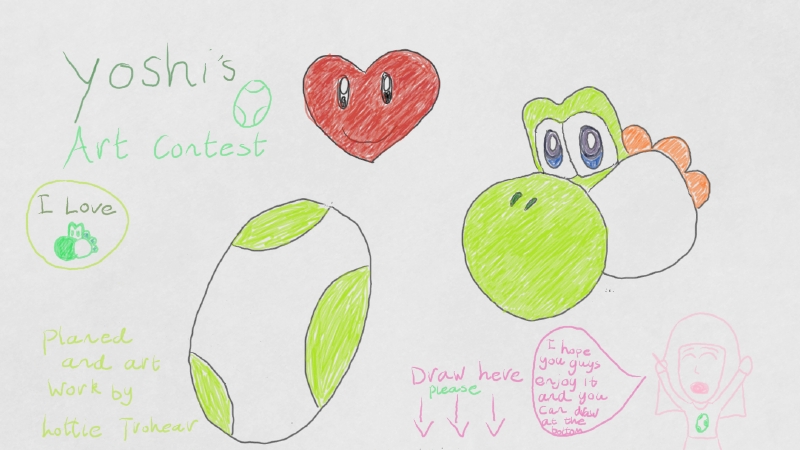 Yoshi's
Art Contest
I Love
planed
and art
work by
Lottie Trohear
Draw here
please
I hope
you guys
enjoy it
and you
can draw
at the